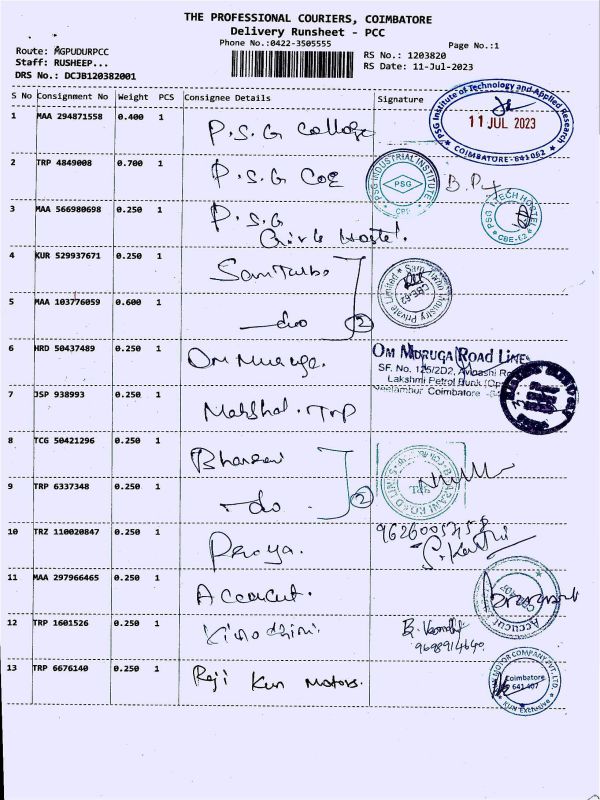 THE PROFESSIONAL COURIERS, COIMBATORE
Delivery Runsheet - PCC
Phone No.:0422-3505555
Page No.:1
Route: MGPUDURPCC
Staff: RUSHEEP...
DRS No.: DCJB120382001
RS No.: 1203820
RS Date: 11-Jul-2023
S No Consignment No Weight PCS Consignee Details Signature
1 MAA 294871558 0.400 1 P.S.G College
PSG Institute of Technology and Applied Research
11 JUL 2023
COIMBATORE-641 062
2 TRP 4849008 0.700 1 P.S.G COE
PSG INDUSTRIAL INSTITUTE
PSG
CBE
3 MAA 566980698 0.250 1 P.S.G
Girls Hostel.
PSG TECH HOSTEL
CBE-62
4 KUR 529937671 0.250 1 Sam Turbo
Sam Turbo Industry Private Limited
CBE-62
5 MAA 103776059 0.600 1 do 2
6 HRD 50437489 0.250 1 Om Muruga.
OM MURUGA ROAD LINES
SF. No. 125/2D2, Avinashi
Lakshmi Petrol Bunk
Neelambur Coimbatore
7 JSP 938993 0.250 1 Marshal. Trp
8 TCG 50421296 0.250 1 Bharani
BHARANI ROAD LINES
9 TRP 6337348 0.250 1 do 2
10 TRZ 110020847 0.250 1
S. Karthi
11 MAA 297966465 0.250 1 Accucut.
ACCUCUT
12 TRP 1601526 0.250 1 Vinodhini.
9698914640
13 TRP 6676140 0.250 1 Raji Kun Motors.
KUN MOTOR COMPANY PVT. LTD.
Coimbatore
641 407
KUN Exclusive